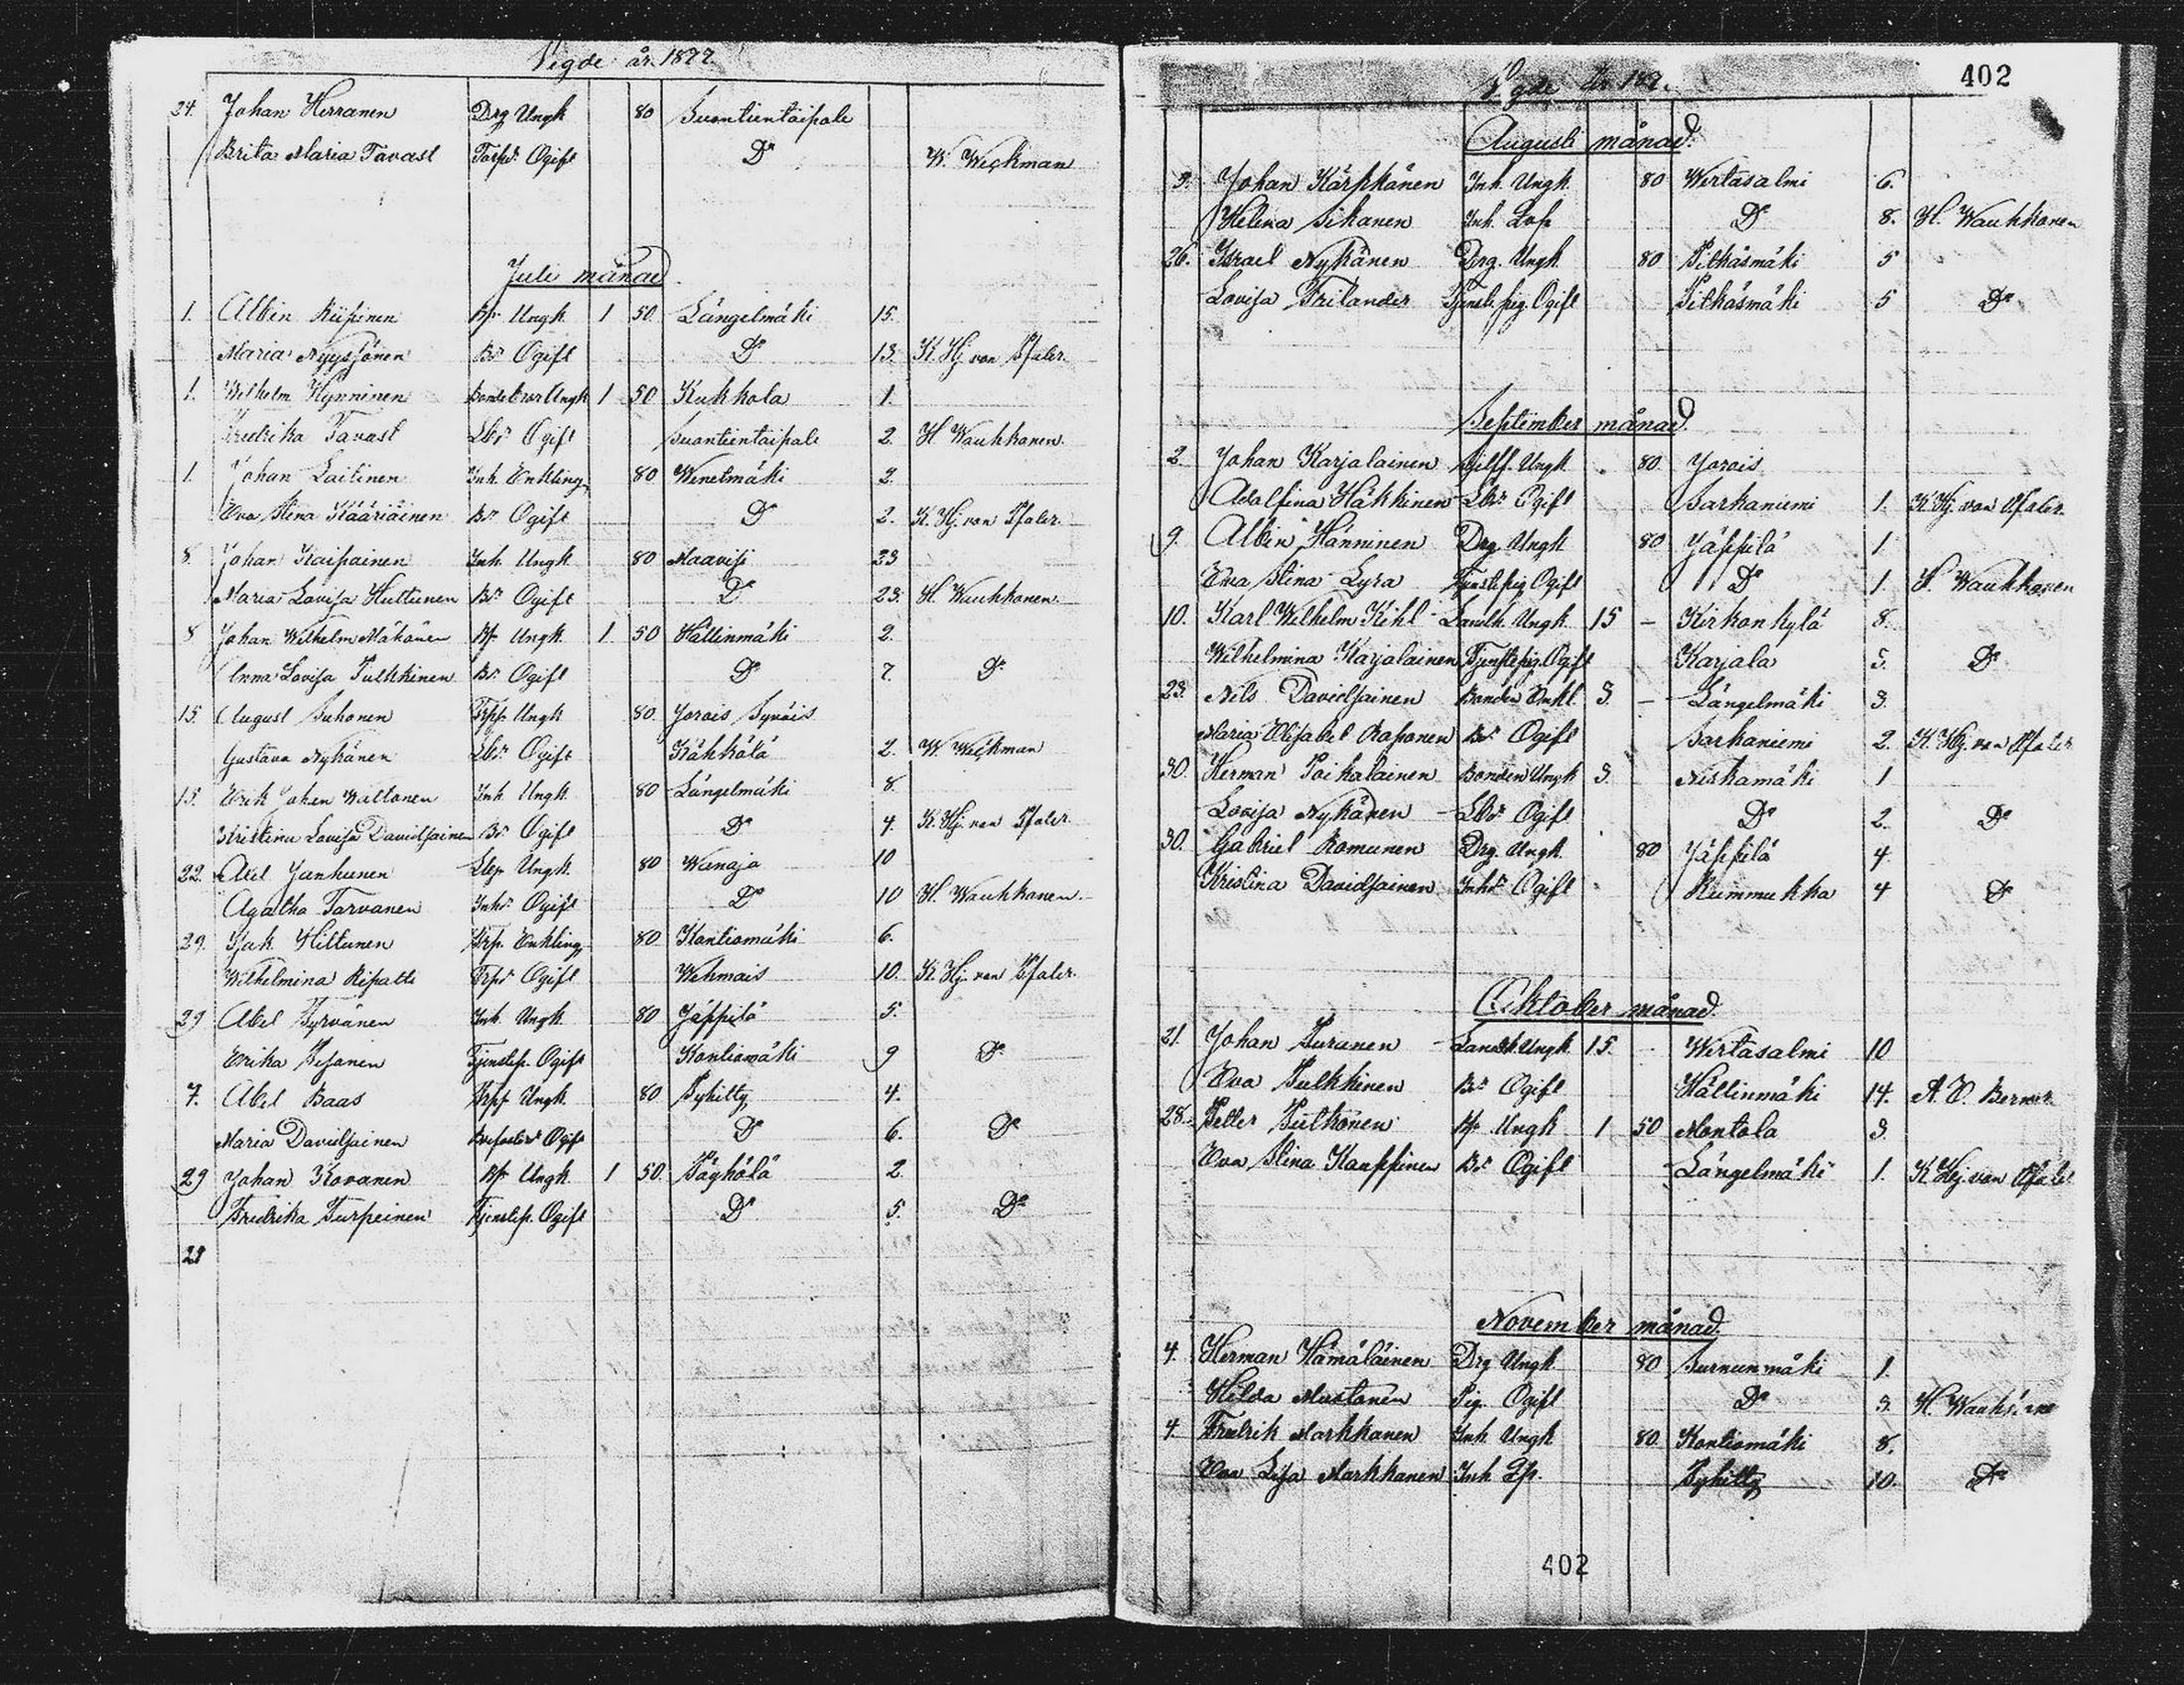 Vigde år 1877.
24. Johan Herranen Drg Ungk 80 Suontientaipale
Brita Maria Tavast Torpdr Ogift Do W. Weckman
Juli månad
1. Albin Riipinen Bp Ungk 1 50 Längelmäki 15.
Maria Nyyssönen Bdr Ogift Do 13. K. Hj. von Pfaler.
1. Wilhelm Hynninen Bondebror Ungk 1 50 Kukkola 1.
Fredrika Tavast Lbdr Ogift Suontientaipale 2. H Waukkonen.
1. Johan Laitinen Inh. Enkling 80 Wenetmäki 2.
Eva Stina Kääriäinen Bdr Ogift Do 2. K. Hj. von Pfaler.
8. Johan Kaipainen Inh. Ungk 80 Maavesi 23
Maria Lovisa Huttunen Bdr Ogift Do 23. H. Waukkonen.
8 Johan Wilhelm Mähönen Bp Ungk 1 50 Hällinmäki 2.
Anna Lovisa Pulkkinen Bdr Ogift Do 7. Do
15. August Suhonen Trpp Ungk 80. Jorois Syväis
Gustava Nykänen Lbdr Ogift Kähkölä 2. W Weckman
15. Erik Johan Waltonen Inh. Ungk. 80 Längelmäki 8.
Kristina Lovisa Davidsainen Bdr Ogift Do 4. K. Hj. von Pfaler.
22. Axel Janhunen Lbp Ungk. 80 Wanaja 10
Agatha Tarvanen Inhdr Ogift Do 10 H. Waukkonen.
29. Isak Hiltunen Trp. Enkling 80. Kontiomäki 6.
Wilhelmina Ripatti Trpdr Ogift Wehmais 10. K. Hj. von Pfaler.
29 Abel Tyrvänen Inh. Ungk. 80 Jäppilä 5.
Erika Pesanen Tjenstep. Ogift Kontiomäki 9 Do
7. Abel Baas Trpp Ungk. 80 Syhitty 4.
Maria Davidsainen Ogift Do 6. Do
29 Johan Kovanen Bp Ungk 1 50. Päyhölä 2.
Fredrika Turpeinen Tjenstep. Ogift Do 5. Do
29
402
Vigde År 187.
Augusti månad.
9. Johan Kärkkänen Inh. Ungk. 80 Wirtasalmi 6.
Helena Sikanen Inh. Do 8. H. Waukkonen
26. Israel Nykänen Drg. Ungk. 80 Pitkäsmäki 5
Lovisa Frilander Tjenstepig. Ogift Pitkäsmäki 5 Do
September månad.
2. Johan Karjalainen Ungk. 80. Jorois
Adolfina Häkkinen Lbdr Ogift Sarkaniemi 1. K. Hj. von Pfaler.
9. Albin Hänninen Drg. Ungk 80 Jäppilä 1
Eva Stina Lyra Tjenstepig Ogift Do 1. H. Waukkonen
10. Karl Wilhelm Kihl Landtk. Ungk. 15 — Kirkonkylä 8.
Wilhelmina Karjalainen Tjenstepig. Ogift Karjala 5. Do
23. Nils Davidsainen Bonden Enkl. 3. — Längelmäki 3.
Maria Elisabet Raponen Bdr Ogift Sarkaniemi 2. K. Hj. von Pfaler
30. Herman Poikalainen Bonden Ungk 3. Niskamäki 1
Lovisa Nykänen Lbdr Ogift Do 2. Do
30. Gabriel Romunen Drg. Ungk. 80 Jäppilä 4.
Kristina Davidsainen Inhdr Ogift Rummukka 4 Do
Oktober månad.
21. Johan Puranen Landtk Ungk 15. Wirtasalmi 10
Eva Pulkkinen Bdr Ogift Hällinmäki 14. A. E. Berner.
28. Petter Pulkönen Bp Ungk 1 50 Montola 3.
Eva Stina Kauppinen Bdr Ogift Längelmäki 1. K. Hj. von Pfaler
November månad.
4. Herman Hämäläinen Drg Ungk. 80 Surnunmäki 1.
Hilda Mustonen Pig. Ogift Do 3. H. Waukkonen
4. Fredrik Markkanen Inh. Ungk 80. Kontiomäki 8.
Eva Lisa Markkanen Inh. Syhitty 10. Do
402